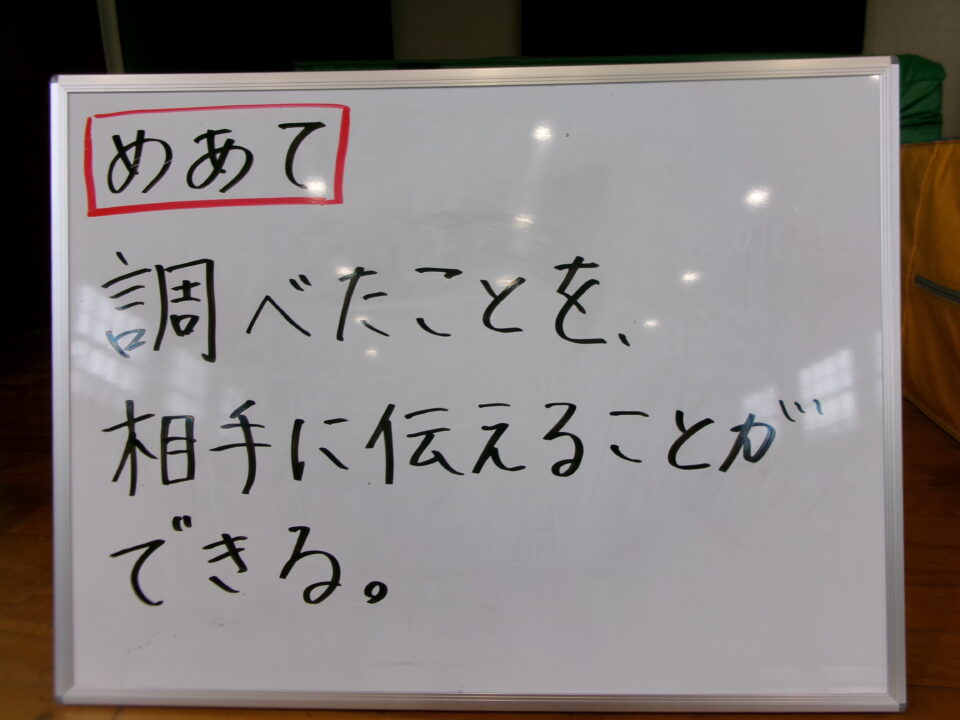 めあて
調べたことを、
相手に伝えることが
できる。